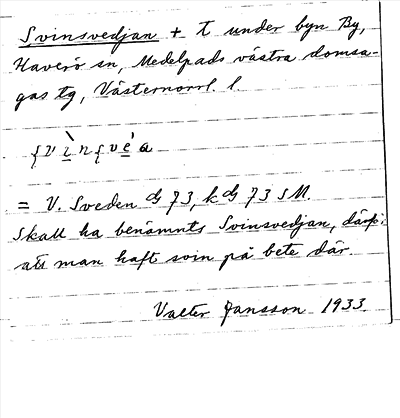 Svinsvedjan + t under byn By,
Haverö sn, Medelpads västra domsa-
gas tg, Västernorrl. l.
= V. Sveden dG 73, k dG 73 SM.
Skall ha benämnts Svinsvedjan, därför
att man haft svin på bete där.
Valter Jansson 1933.